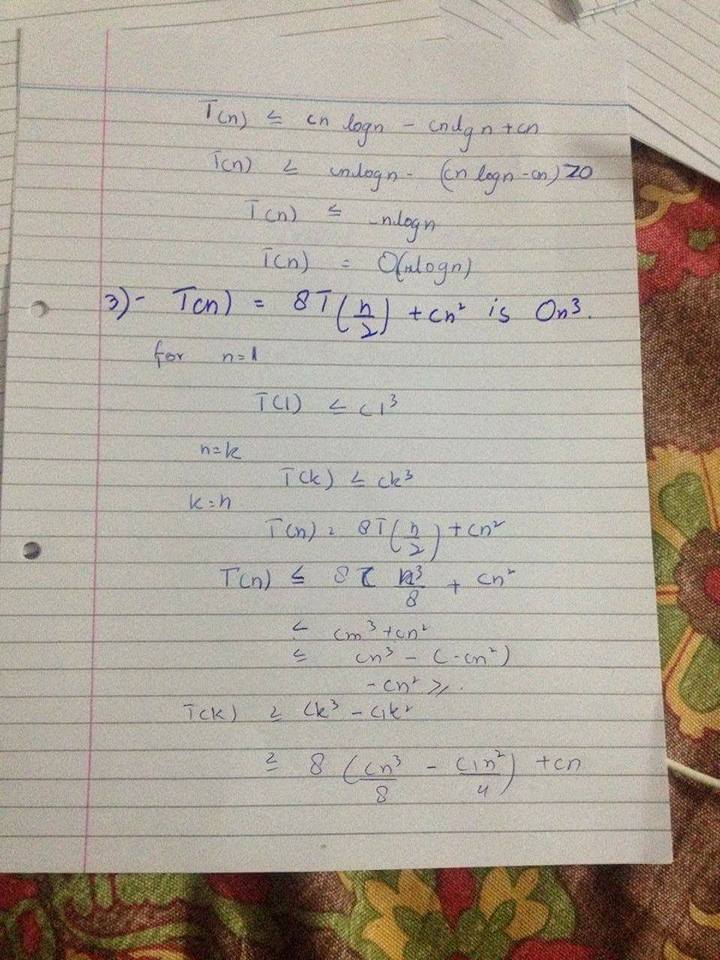 T(n) ≤ cn logn - cnlgn + cn
T(n) ≤ cnlogn - (cn logn - cn) ≥0
T(n) ≤ nlogn
T(n) = O(nlogn)
3)- T(n) = 8T(n/2) + cn² is On³.
for n=1
T(1) ≤ c1³
n=k
T(k) ≤ ck³
k=n
T(n) = 8T(n/2) + cn²
T(n) ≤ 8 n³/8 + cn²
≤ cn³ + cn²
≤ cn³ - (-cn²)
-cn² ≥.
T(k) ≥ ck³ - c₁k²
≥ 8 (cn³/8 - c₁n²/4) + cn